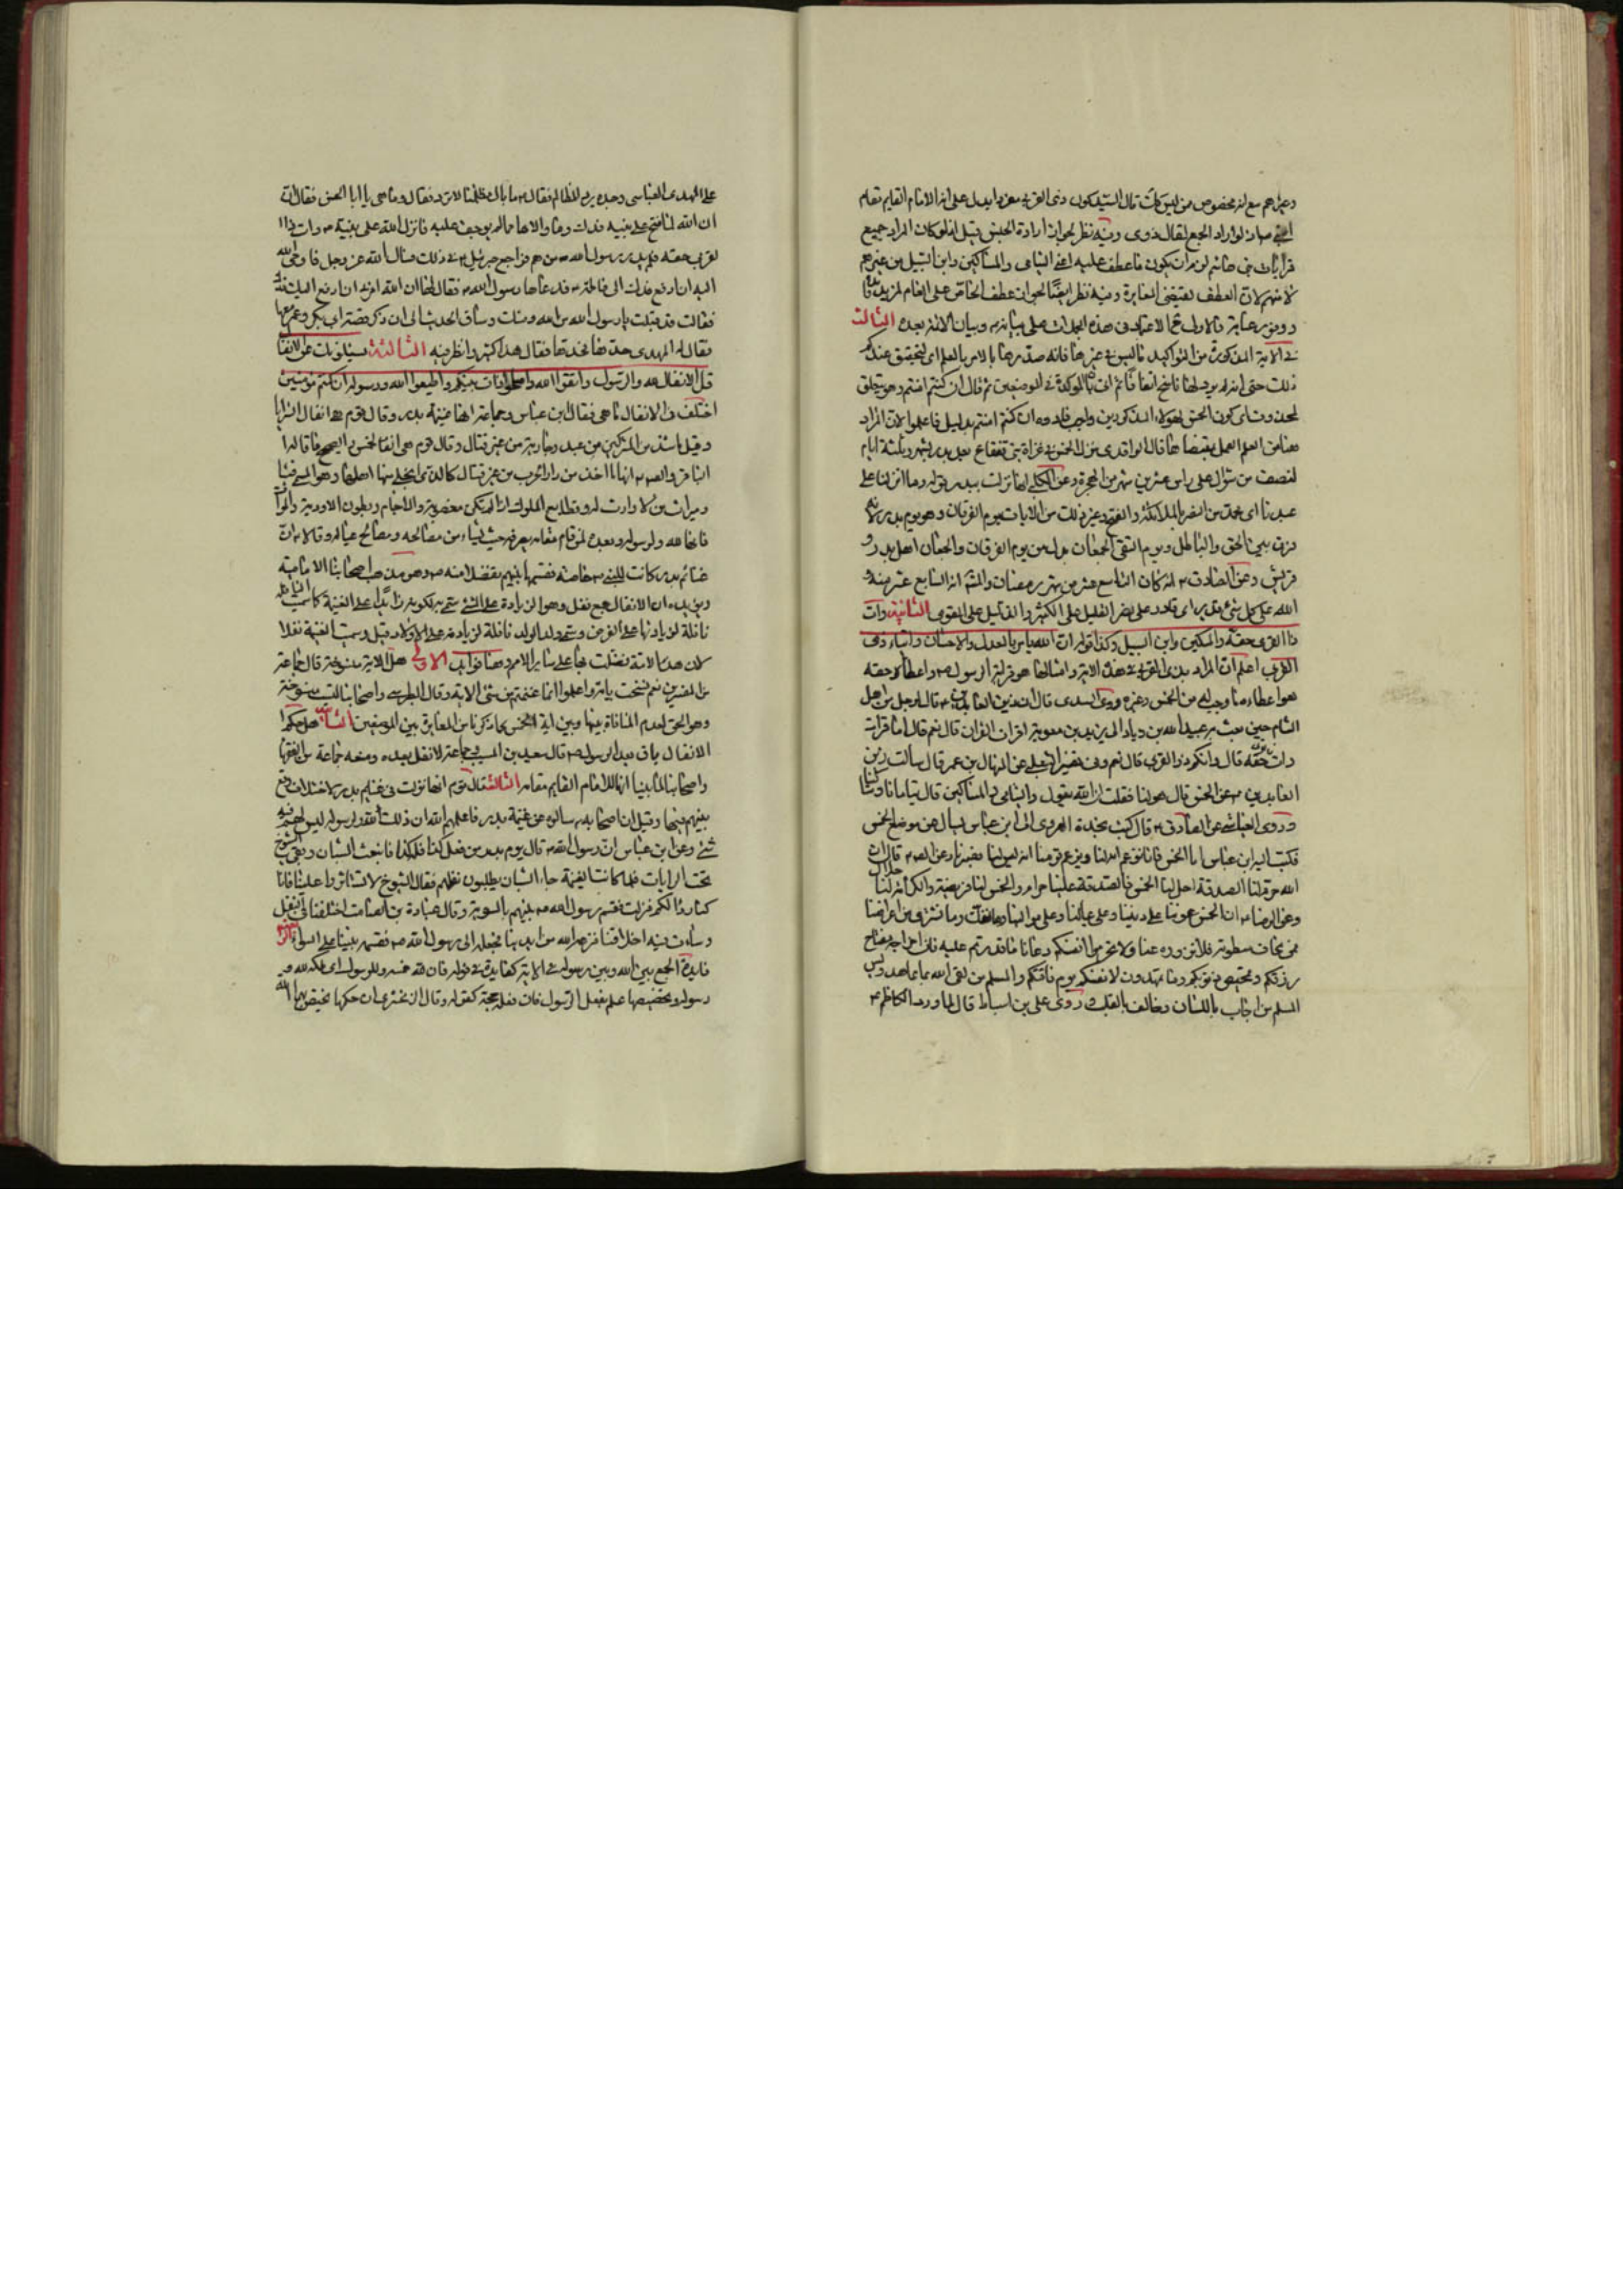 وغيرهم مع انه مخصوص من ليس كك قال السيد كون ذى القربى مفردا يدل على انه الامام القايم مقام
النبى اذ لو اراد الجمع لقال ذوى وفيه نظر لجواز ارادة الجنس قيل انه لو كان المراد جميع
قرابات بنى هاشم لزم ان يكون ما عطف عليه اعنى اليتامى والمساكين وابن السبيل من غيرهم
لا منهم لان العطف يقتضى المغايرة وفيه نظر ايضا لجواز عطف الخاص على العام لمزيد فائدة
ووفور عناية فالاولى الاعتماد فى هذه على بيانه وبيان الائمة بعده الثالث
فى الاية المذكورة من التواكيد ما ليس فى غيرها فانه صدرها بالامر بالعلم اى لتحقيق عندكم
ذلك حتى انه لم يرد لها ناسخ اتفاقا ثم اتى بان الموكدة فى الموضعين ثم قال ان كنتم امنتم وهو يتعلق
بمحذوف اى كون الخمس لهؤلاء المذكورين واجب فادوه ان كنتم امنتم بدليل فاعلموا لان المراد
هنا من العلم العمل بمقتضاها قال الواقدى نزل الخمس فى غزاة بنى قينقاع بعد بدر بشهر وثلثة ايام
لنصف من شوال على راس عشرين شهر من الهجرة وعن الكلبى انها نزلت ببدر بقوله وما انزلنا على
عبدنا اى محمد من النصر بالملائكة والفتح وغير ذلك من الايات يوم الفرقان وهو يوم بدر لانه
فرق بين الحق والباطل ويوم التقى الجمعان بدل من يوم الفرقان والجمعان اهل بدر و
قريش وعن الصادق ع انه كان التاسع عشر من شهر رمضان والمشهور انه السابع عشر منه و
الله على كل شئ قدير اى قادر على نصر القليل على الكثير والذليل على القوى الثانية وات
ذا القربى حقه والمسكين وابن السبيل وكذا قوله ان الله يامر بالعدل والاحسان وايتاء ذى
القربى اعلم ان المراد بذى القربى فى هذه الاية وامثالها هو قرابة الرسول ص واعطاؤه حقه
هو اعطاء ما وجب له من الخمس وغيره وروى السدى قال ان زين العابدين ع قال لرجل من اهل
الشام حين بعث به عبيد الله بن زياد الى يزيد بن معوية اقرات القران قال نعم قال اما قرات
وات ذا القربى حقه قال وانكم ذو القربى قال نعم وفى تفسير الثعلبى عن المنهال بن عمر قال سالت زين
العابدين ع عن الخمس قال هو لنا فقلت ان الله يقول واليتامى والمساكين قال يتامانا ومساكيننا
وروى العياشى عن الصادق ع قال كتب نجدة الحرورى الى ابن عباس يسال عن موضع الخمس
فكتب اليه ابن عباس اما الخمس فانا نزعم انه لنا ويزعم قومنا انه ليس لنا فصبرنا وعن الصادق ع قال ان
الله حرم لنا الصدقة احل لنا الخمس فالصدقة علينا حرام والخمس لنا فريضة والكرامة لنا حلال
وعن الرضا ع ان الخمس عوننا على ديننا وعلى عيالنا وعلى موالينا وما نفك وما نشترى من اعراضنا
ممن نخاف سطوته فلا تزووه عنا ولا تحرموا انفسكم دعانا ما قدرتم عليه فان اخراجه مفتاح
رزقكم وتمحيص ذنوبكم وما تمهدون لانفسكم يوم فاقتكم والمسلم من لقى الله بما عاهد وليس
المسلم من اجاب باللسان وخالف بالقلب وروى على بن اسباط قال لما ورد الكاظم ع
على المهدى العباسى وجده يرد المظالم فقال ما بال مظلمتنا لا ترد فقال وما هى يا ابا الحسن فقال ان
ان الله لما فتح على نبيه فدك وما والاها مما لم يوجف عليه فانزل الله على نبيه ص وات ذا ا
لقربى حقه فلم يدر رسول الله ص من هم فراجع جبرئيل ع فى ذلك فسال الله عز وجل فاوحى الله
اليه ان ادفع فدك الى فاطمة ع فدعاها رسول الله ص فقال لها ان الله امرنى ان ادفع اليك فدك
فقالت قد قبلت يا رسول الله من الله ومنك وساق الحديث الى ان ذكر قصة ابى بكر وعمر معها
فقال له المهدى حدها فحدها فقال هذا كثير وانظر فيه الثالثة يسئلونك عن الانفا
قل الانفال لله والرسول فاتقوا الله واصلحوا ذات بينكم واطيعوا الله ورسوله ان كنتم مؤمنين
اختلف فى الانفال ما هى فقال ابن عباس وجماعة انها غنيمة بدر وقال قوم هى انفال السرايا
وقيل ما شذ من المشركين من عبد وجارية من غير قتال وقال قوم هى الخمس والصحيح ما قاله ا
لباقر والصادق ع انها ما اخذ من دار الحرب من غير قتال كالذى انجلى عنها اهلها وهو المسمى فيئا
وميراث من لا وارث له وقطايع الملوك اذا لم يكن مغصوبة والاجام وبطون الاودية والموات
فانها لله ولرسوله وبعده لمن قام مقامه يصرفه حيث يشاء من مصالحه ومصالح عياله وقالا ان
غنائم بدر كانت للنبى ص خاصة فقسمها بينهم تفضلا منه ص وهو مذهب اصحابنا الامامية
ويؤيده ان الانفال جمع نفل وهو الزيادة على الشئ سمى به لكونه زائدا على الغنيمة كما سميت النافلة
نافلة لزيادتها على الفرض وسمى ولد الولد نافلة لزيادته على الاولاد وقيل وسمت الغنيمة نفلا
لان هذه الامة فضلت بها على سائر الامم وهنا فوايد الاولى هل الاية منسوخة قال جماعة
من المفسرين نعم نسخت باية واعلموا انما غنمتم من شئ الاية وقال الطبرسى واصحابنا ليست منسوخة
وهو الحق لعدم المنافاة بينها وبين اية الخمس بما ذكرنا من المغايرة بين الموضعين الثانية هل حكم
الانفال باق بعد الرسول ص قال سعيد بن المسيب وجماعة لا نفل بعده ومنعه جماعة من الفقها
واصحابنا لما بينا انها للامام القايم مقامه الثالثة قال قوم انها نزلت فى غنايم بدر لاختلاف وقع
بينهم فيها وقيل ان اصحابه سالوه عن غنيمة بدر فاعلمهم الله ان ذلك لله ولرسوله ليس لهم فيه
شئ وعن ابن عباس ان رسول الله ص قال يوم بدر من فعل كذا فله كذا فانبعث الشبان وبقى الشيوخ
تحت الرايات فلما كانت الغنيمة جاء الشبان يطلبون نفلهم فقال الشيوخ لا تستاثروا علينا فانا
كنا ردا لكم فنزلت فقسم رسول الله ص بينهم بالسوية وقال عبادة بن الصامت اختلفنا فى النفل
وساءت فيه اخلاقنا فنزعه الله من ايدينا فجعله الى رسول الله ص فقسمه بيننا على السواء الرابعة
فايدة الجمع بين الله وبين رسوله فى الاية كفايدته فى قوله فان لله خمسه وللرسول اى ملكه لله و
رسوله وتخصيصها علم بفعل الرسول فان فعله حجة كقوله وقال الزمخشرى ان حكمها يختص بهما الله